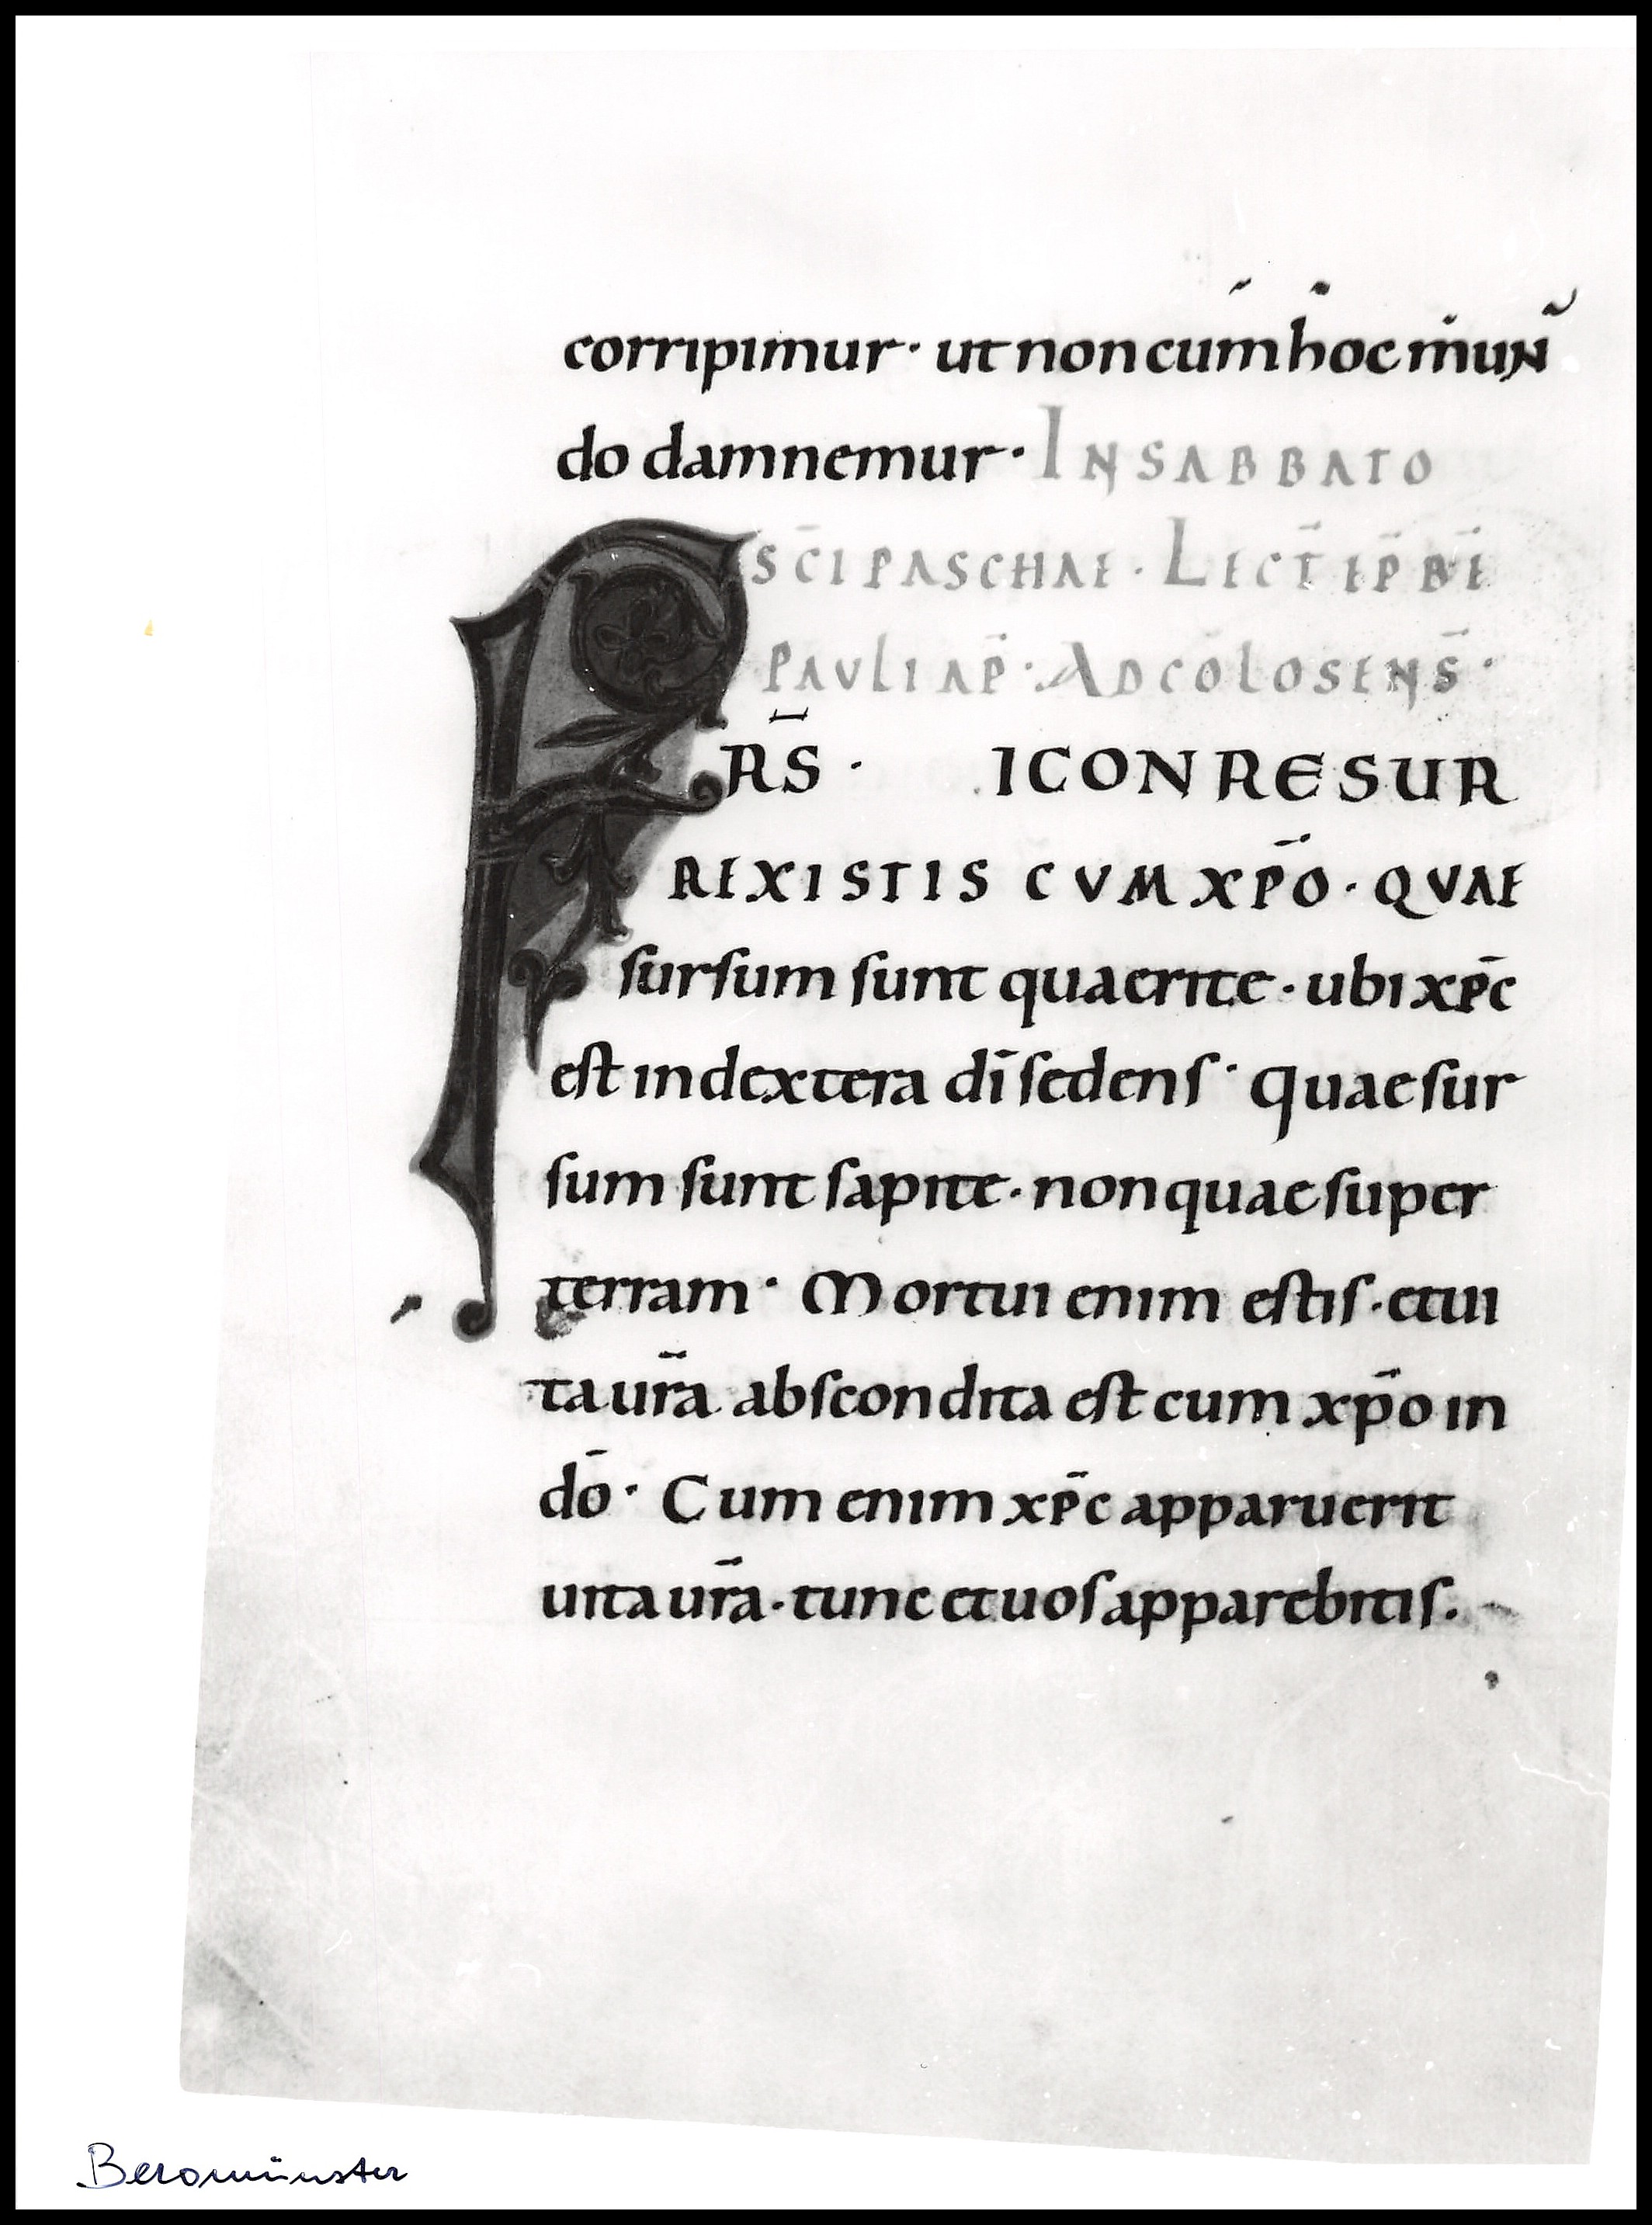 corripimur· ut non cum hoc mun
do damnemur· IN SABBATO
SC̄I PASCHAE· LECT̄ EP̄ BĒI
PAULI AP̄· AD COLOSENS̄·
FR̄S· SI CONRESUR
REXISTIS CUM XP̄O· QUAE
sursum sunt quaerite· ubi xp̄c
est in dextera dī sedens· quae sur
sum sunt sapite· non quae super
terram· Mortui enim estis· et ui
ta ur̄a abscondita est cum xp̄o in
dō· Cum enim xp̄c apparuerit
uita ur̄a· tunc et uos apparebitis.
Beromünster